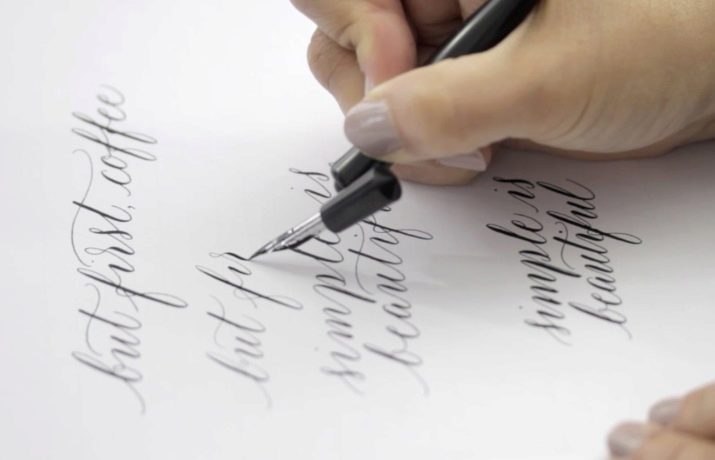 but first, coffee
but fir
simple is
beautiful
simple is
beautiful